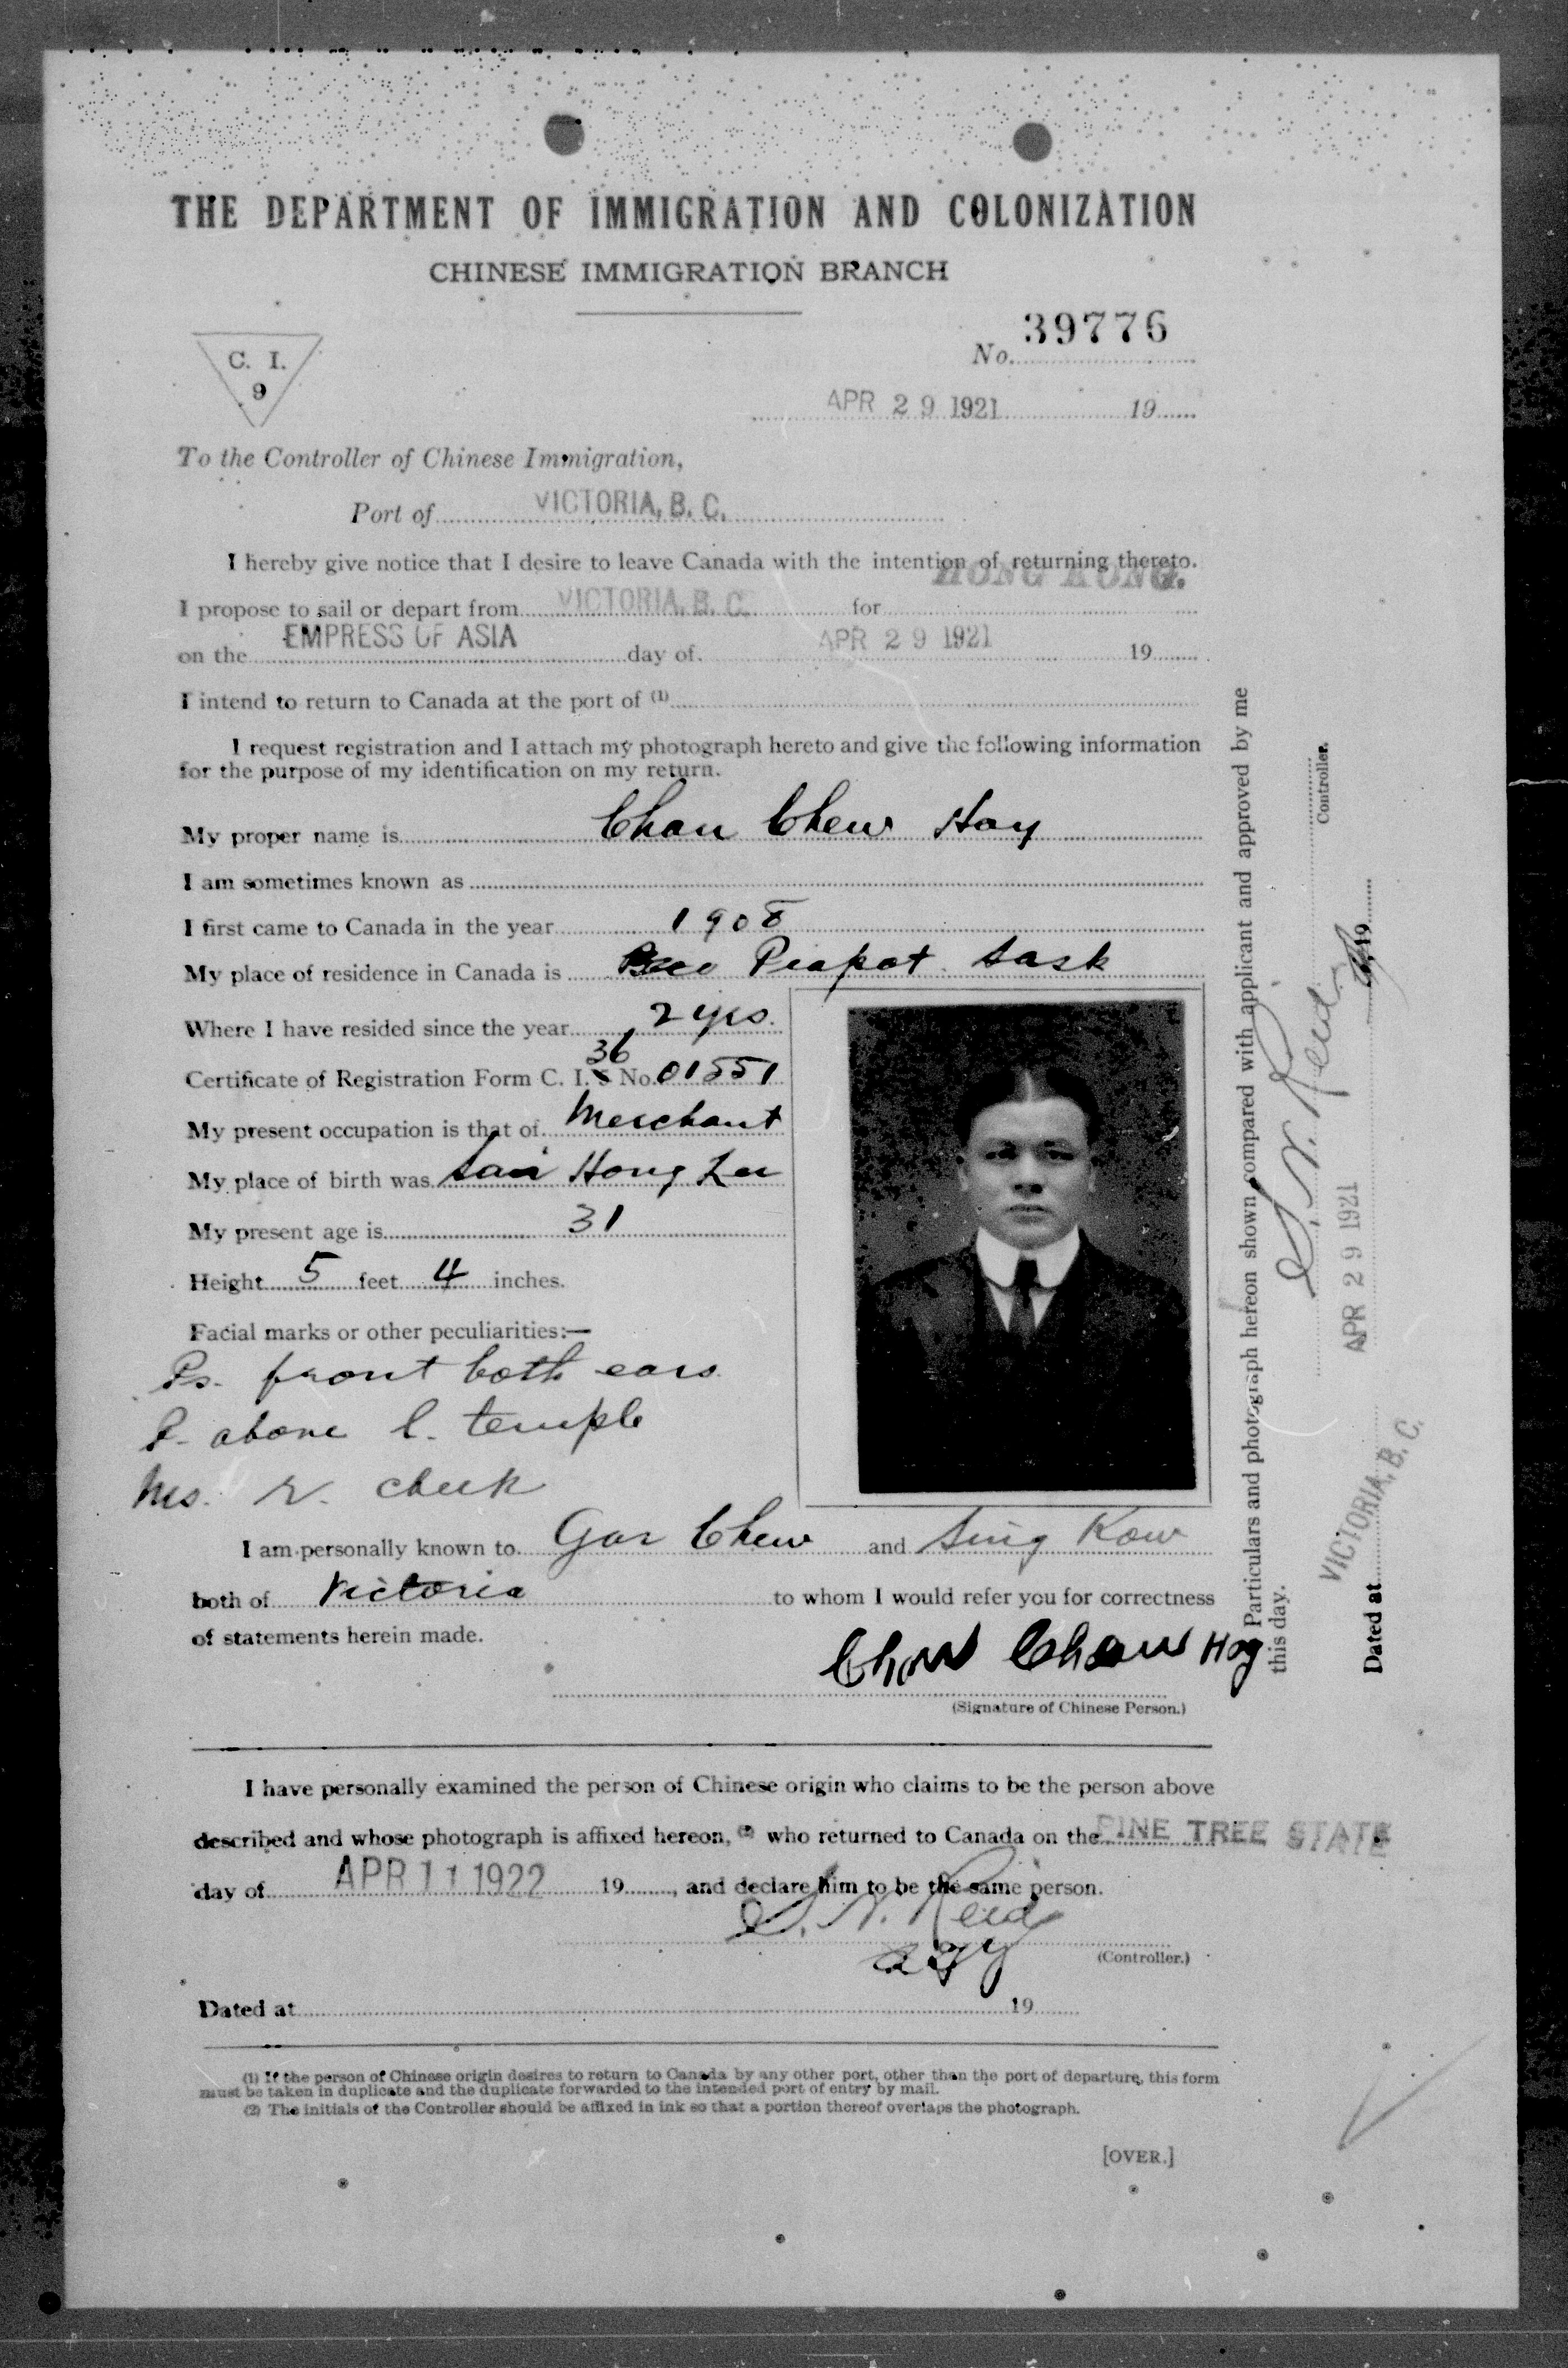 THE DEPARTMENT OF IMMIGRATION AND COLONIZATION
CHINESE IMMIGRATION BRANCH
C. I.
9
No. 39776
APR 29 1921 19
To the Controller of Chinese Immigration,
Port of VICTORIA, B. C.
I hereby give notice that I desire to leave Canada with the intention of returning thereto.
I propose to sail or depart from VICTORIA, B. C. for HONG KONG.
on the EMPRESS OF ASIA day of APR 29 1921 19
I intend to return to Canada at the port of (1)
I request registration and I attach my photograph hereto and give the following information
for the purpose of my identification on my return.
My proper name is Chan Chew Hoy
I am sometimes known as
I first came to Canada in the year 1908
My place of residence in Canada is Piapot Sask
Where I have resided since the year 2 yrs.
36
Certificate of Registration Form C. I. 5 No. 01551
My present occupation is that of Merchant
My place of birth was San Hong
My present age is 31
Height 5 feet 4 inches.
Facial marks or other peculiarities:—
Ps. front both ears
P. above l. temple
Ms. r. cheek
I am personally known to Gar Chew and Sing Kow
both of Victoria to whom I would refer you for correctness
of statements herein made.
Chow Chow Hoy
(Signature of Chinese Person.)
I have personally examined the person of Chinese origin who claims to be the person above
described and whose photograph is affixed hereon, (2) who returned to Canada on the PINE TREE STATE
day of APR 11 1922 19, and declare him to be the same person.
(Controller.)
Dated at 19
(1) If the person of Chinese origin desires to return to Canada by any other port, other than the port of departure, this form
must be taken in duplicate and the duplicate forwarded to the intended port of entry by mail.
(2) The initials of the Controller should be affixed in ink so that a portion thereof overlaps the photograph.
[OVER.]
Particulars and photograph hereon shown compared with applicant and approved by me
this day.
Controller.
Dated at VICTORIA, B. C. APR 29 1921 19